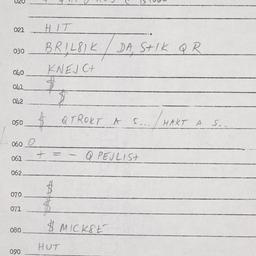 020
022 HIT
030 BR!L8IK / DA, S+IK QR
040 KNEJC+
041 $
042 $
050 $ QTROKT A S... / HAKT A S..
060 0
061 + = - Q PEJLIS+
062
070 $
071 $
080 $ MICK8E
090 HUT